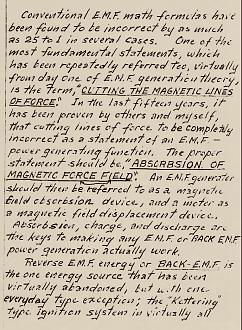 Conventional E.M.F. math formulas have
been found to be incorrect by as much
as 25 to 1 in several cases. One of the
most fundamental statements, which
has been repeatedly referred too, virtually
from day one of E.M.F. generation theory,
is the term, "CUTTING THE MAGNETIC LINES
OF FORCE." In the last fifteen years, it
has been proven by others and myself,
that cutting lines of force to be completely
incorrect as a statement of an E.M.F. -
power generating function. The proper
statement should be, "ABSORBSION OF
MAGNETIC FORCE FIELD". An E.M.F. generator
should then be referred to as a magnetic
field absorbsion device, and a motor as
a magnetic field displacement device.
Absorbsion, charge, and discharge are
the keys to making any E.M.F. or BACK E.M.F.
power generation actually work.
Reverse E.M.F. energy or BACK-E.M.F. is
the one energy source that has been
virtually abandoned, but with one
everyday type exception; the "Kettering"
type ignition system in virtually all